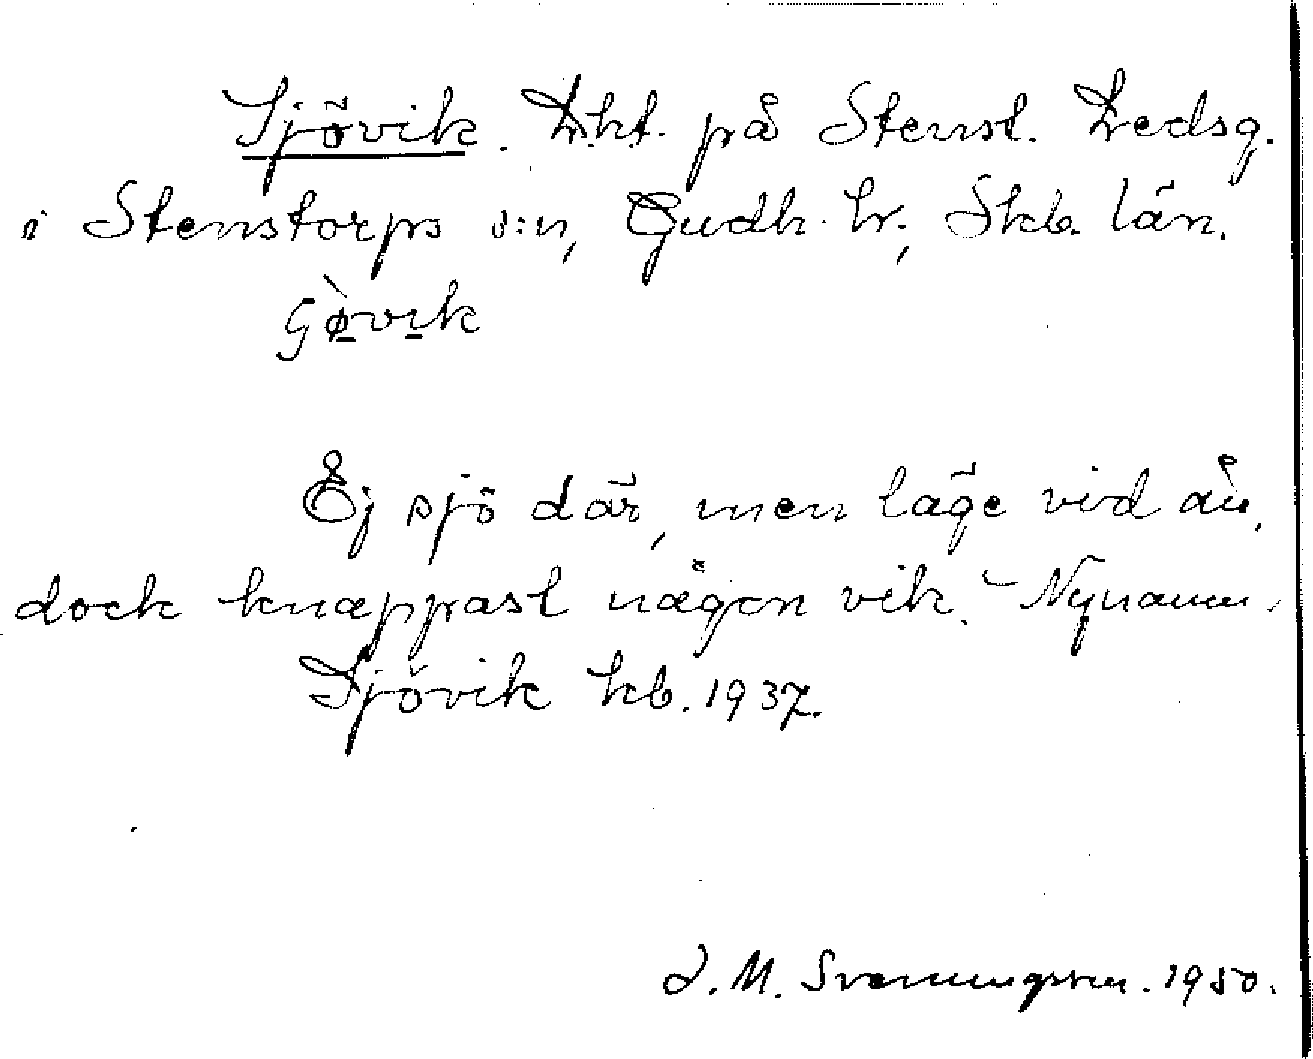 Sjövik. Lht. på Stenst. Ledsg.
i Stenstorps s:n, Gudh. hr., Skb. län.
Gø̀vık
Ej sjö där, men läge vid ån,
dock knappast någon vik. Nynamn.
Sjövik kb. 1937.
J. M. Svenningsson. 1950.